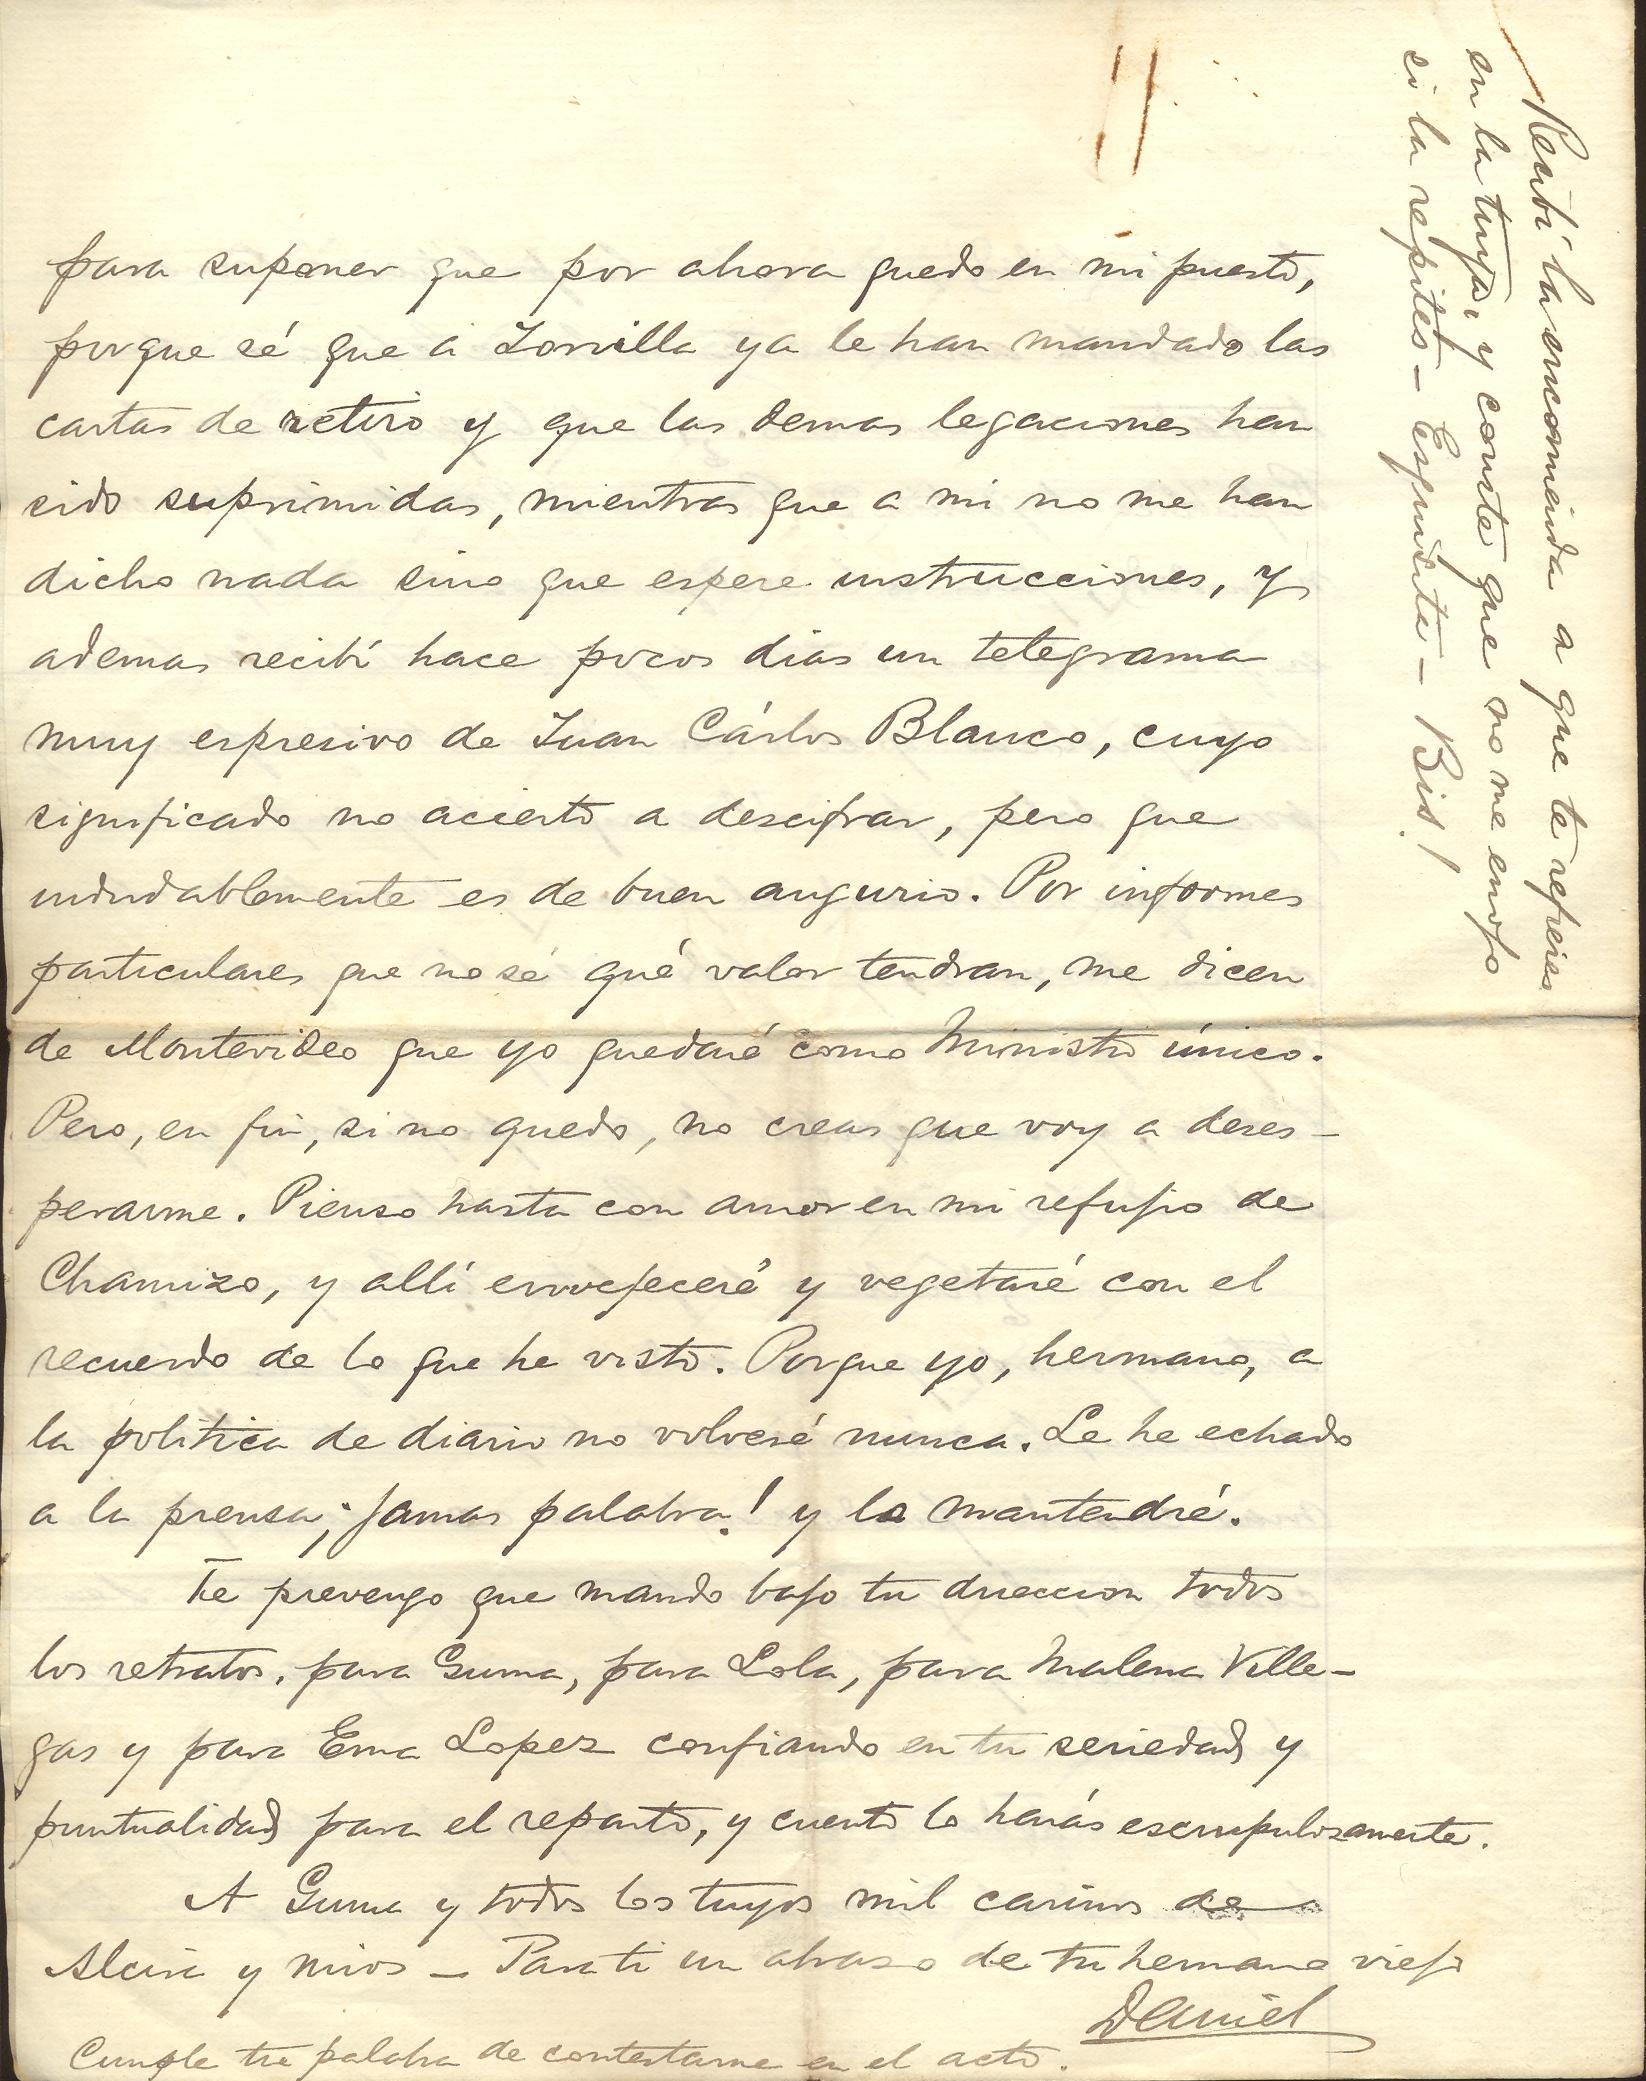 para suponer que por ahora quedo en mi puesto,
porque sé que a Zorrilla ya le han mandado las
cartas de retiro y que las demas legaciones han
sido suprimidas, mientras que a mi no me han
dicho nada sino que espere instrucciones, y
ademas recibí hace pocos dias un telegrama
muy espresivo de Juan Cárlos Blanco, cuyo
significado no acierto a descifrar, pero que
indudablemente es de buen augurio. Por informes
particulares que no sé qué valor tendran, me dicen
de Montevideo que yo quedaré como Ministro único.
Pero, en fin, si no quedo, no creas que voy a deses-
perarme. Pienso hasta con amor en mi refujio de
Chamizo, y allí envejeceré y vegetaré con el
recuerdo de lo que he visto. Porque yo, hermano, a
la politica de diario no volveré nunca. Le he echado
a la prensa ¡Jamas palabra! y la mantendré.
Te prevengo que mando bajo tu direccion todos
los retratos, para Guma, para Lola, para Malena Ville-
gas y para Ema Lopez confiando en tu seriedad y
puntualidad para el reparto, y cuento lo harás escrupulosamente.
A Guma y todos los tuyos mil cariños de
Alcira y niños – Para ti un abrazo de tu hermano viejo
Daniel
Cumple tu palabra de contestarme en el acto.
Recibí la encomienda a que te refieres
en la tuya, y conste que no me enojo
si la repites – Esquisita – Bis!